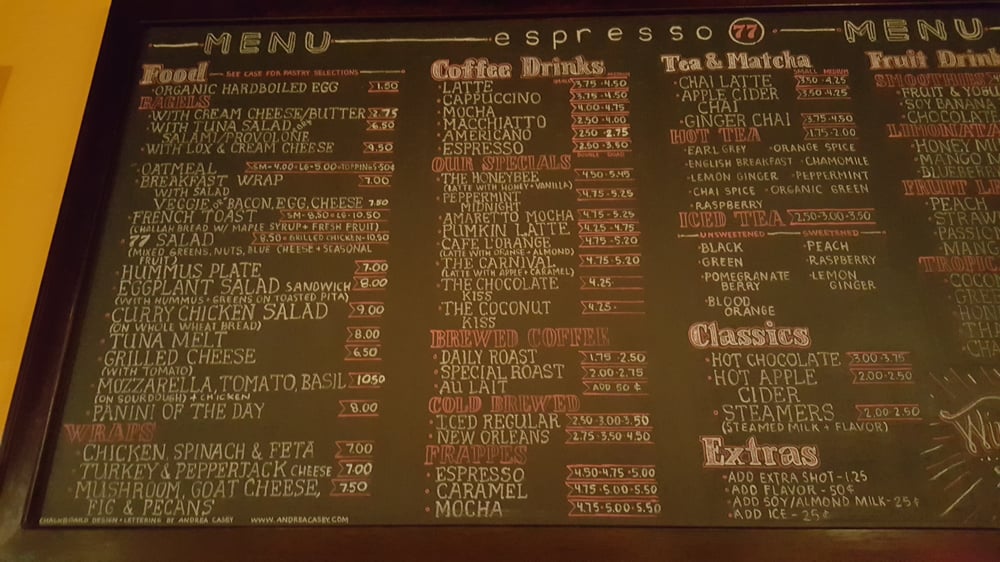 MENU espresso 77 MENU
Food SEE CASE FOR PASTRY SELECTIONS
ORGANIC HARDBOILED EGG 1.50
BAGELS
WITH CREAM CHEESE/BUTTER 2.75
WITH TUNA SALAD or 6.50
SALAMI/PROVOLONE
WITH LOX & CREAM CHEESE 9.50
OATMEAL SM-4.00-LG-5.00-TOPPINGS-50¢
BREAKFAST WRAP 7.00
WITH SALAD
VEGGIE or BACON, EGG, CHEESE 7.50
FRENCH TOAST SM-8.50-LG-10.50
(CHALLAH BREAD W/ MAPLE SYRUP + FRESH FRUIT)
77 SALAD 8.50-GRILLED CHICKEN-10.50
(MIXED GREENS, NUTS, BLUE CHEESE + SEASONAL
FRUIT)
HUMMUS PLATE 7.00
EGGPLANT SALAD SANDWICH 8.00
(WITH HUMMUS + GREENS ON TOASTED PITA)
CURRY CHICKEN SALAD 9.00
(ON WHOLE WHEAT BREAD)
TUNA MELT 8.00
GRILLED CHEESE 6.50
(WITH TOMATO)
MOZZARELLA, TOMATO, BASIL 10.50
(ON SOURDOUGH) + CHICKEN
PANINI OF THE DAY 8.00
WRAPS
CHICKEN, SPINACH & FETA 7.00
TURKEY & PEPPERJACK CHEESE 7.00
MUSHROOM, GOAT CHEESE, 7.50
FIG & PECANS
CHALKBOARD DESIGN + LETTERING BY ANDREA CASEY WWW.ANDREACASEY.COM
Coffee Drinks SMALL MEDIUM
LATTE 3.75-4.50
CAPPUCCINO 3.75-4.50
MOCHA 4.00-4.75
MACCHIATTO 2.50-4.00
AMERICANO 2.50-2.75
ESPRESSO 2.50-3.50
DOUBLE QUAD
OUR SPECIALS
THE HONEYBEE 4.50-5.45
(LATTE WITH HONEY + VANILLA)
PEPPERMINT 4.75-5.25
MIDNIGHT
AMARETTO MOCHA 4.75-5.25
PUMKIN LATTE 4.25-4.75
CAFE L'ORANGE 4.75-5.20
(LATTE WITH ORANGE + ALMOND)
THE CARNIVAL 4.75-5.20
(LATTE WITH APPLE + CARAMEL)
THE CHOCOLATE 4.25-
KISS
THE COCONUT 4.25-
KISS
BREWED COFFEE
DAILY ROAST 1.75-2.50
SPECIAL ROAST 2.00-2.75
AU LAIT ADD 50¢
COLD BREWED
ICED REGULAR 2.50-3.00-3.50
NEW ORLEANS 2.75-3.50-4.50
FRAPPES
ESPRESSO 4.50-4.75-5.00
CARAMEL 4.75-5.00-5.50
MOCHA 4.75-5.00-5.50
Tea & Matcha SMALL MEDIUM
CHAI LATTE 3.50-4.25
APPLE CIDER 3.50-4.25
CHAI
GINGER CHAI 3.75-4.50
HOT TEA 1.75-2.00
EARL GREY ORANGE SPICE
ENGLISH BREAKFAST CHAMOMILE
LEMON GINGER PEPPERMINT
CHAI SPICE ORGANIC GREEN
RASPBERRY
ICED TEA 2.50-3.00-3.50
UNSWEETENED SWEETENED
BLACK PEACH
GREEN RASPBERRY
POMEGRANATE LEMON
BERRY GINGER
BLOOD
ORANGE
Classics
HOT CHOCOLATE 3.00-3.75
HOT APPLE 2.00-2.50
CIDER
STEAMERS 2.00-2.50
(STEAMED MILK + FLAVOR)
Extras
ADD EXTRA SHOT-1.25
ADD FLAVOR-50¢
ADD SOY/ALMOND MILK-25¢
ADD ICE-25¢
Fruit Drink
SMOOTHIES
FRUIT & YOGU
SOY BANANA
CHOCOLATE
LIMONATA
HONEY M
MANGO
BLUEBERR
FRUIT
PEACH
STRAW
PASSION
MANG
TROPIC